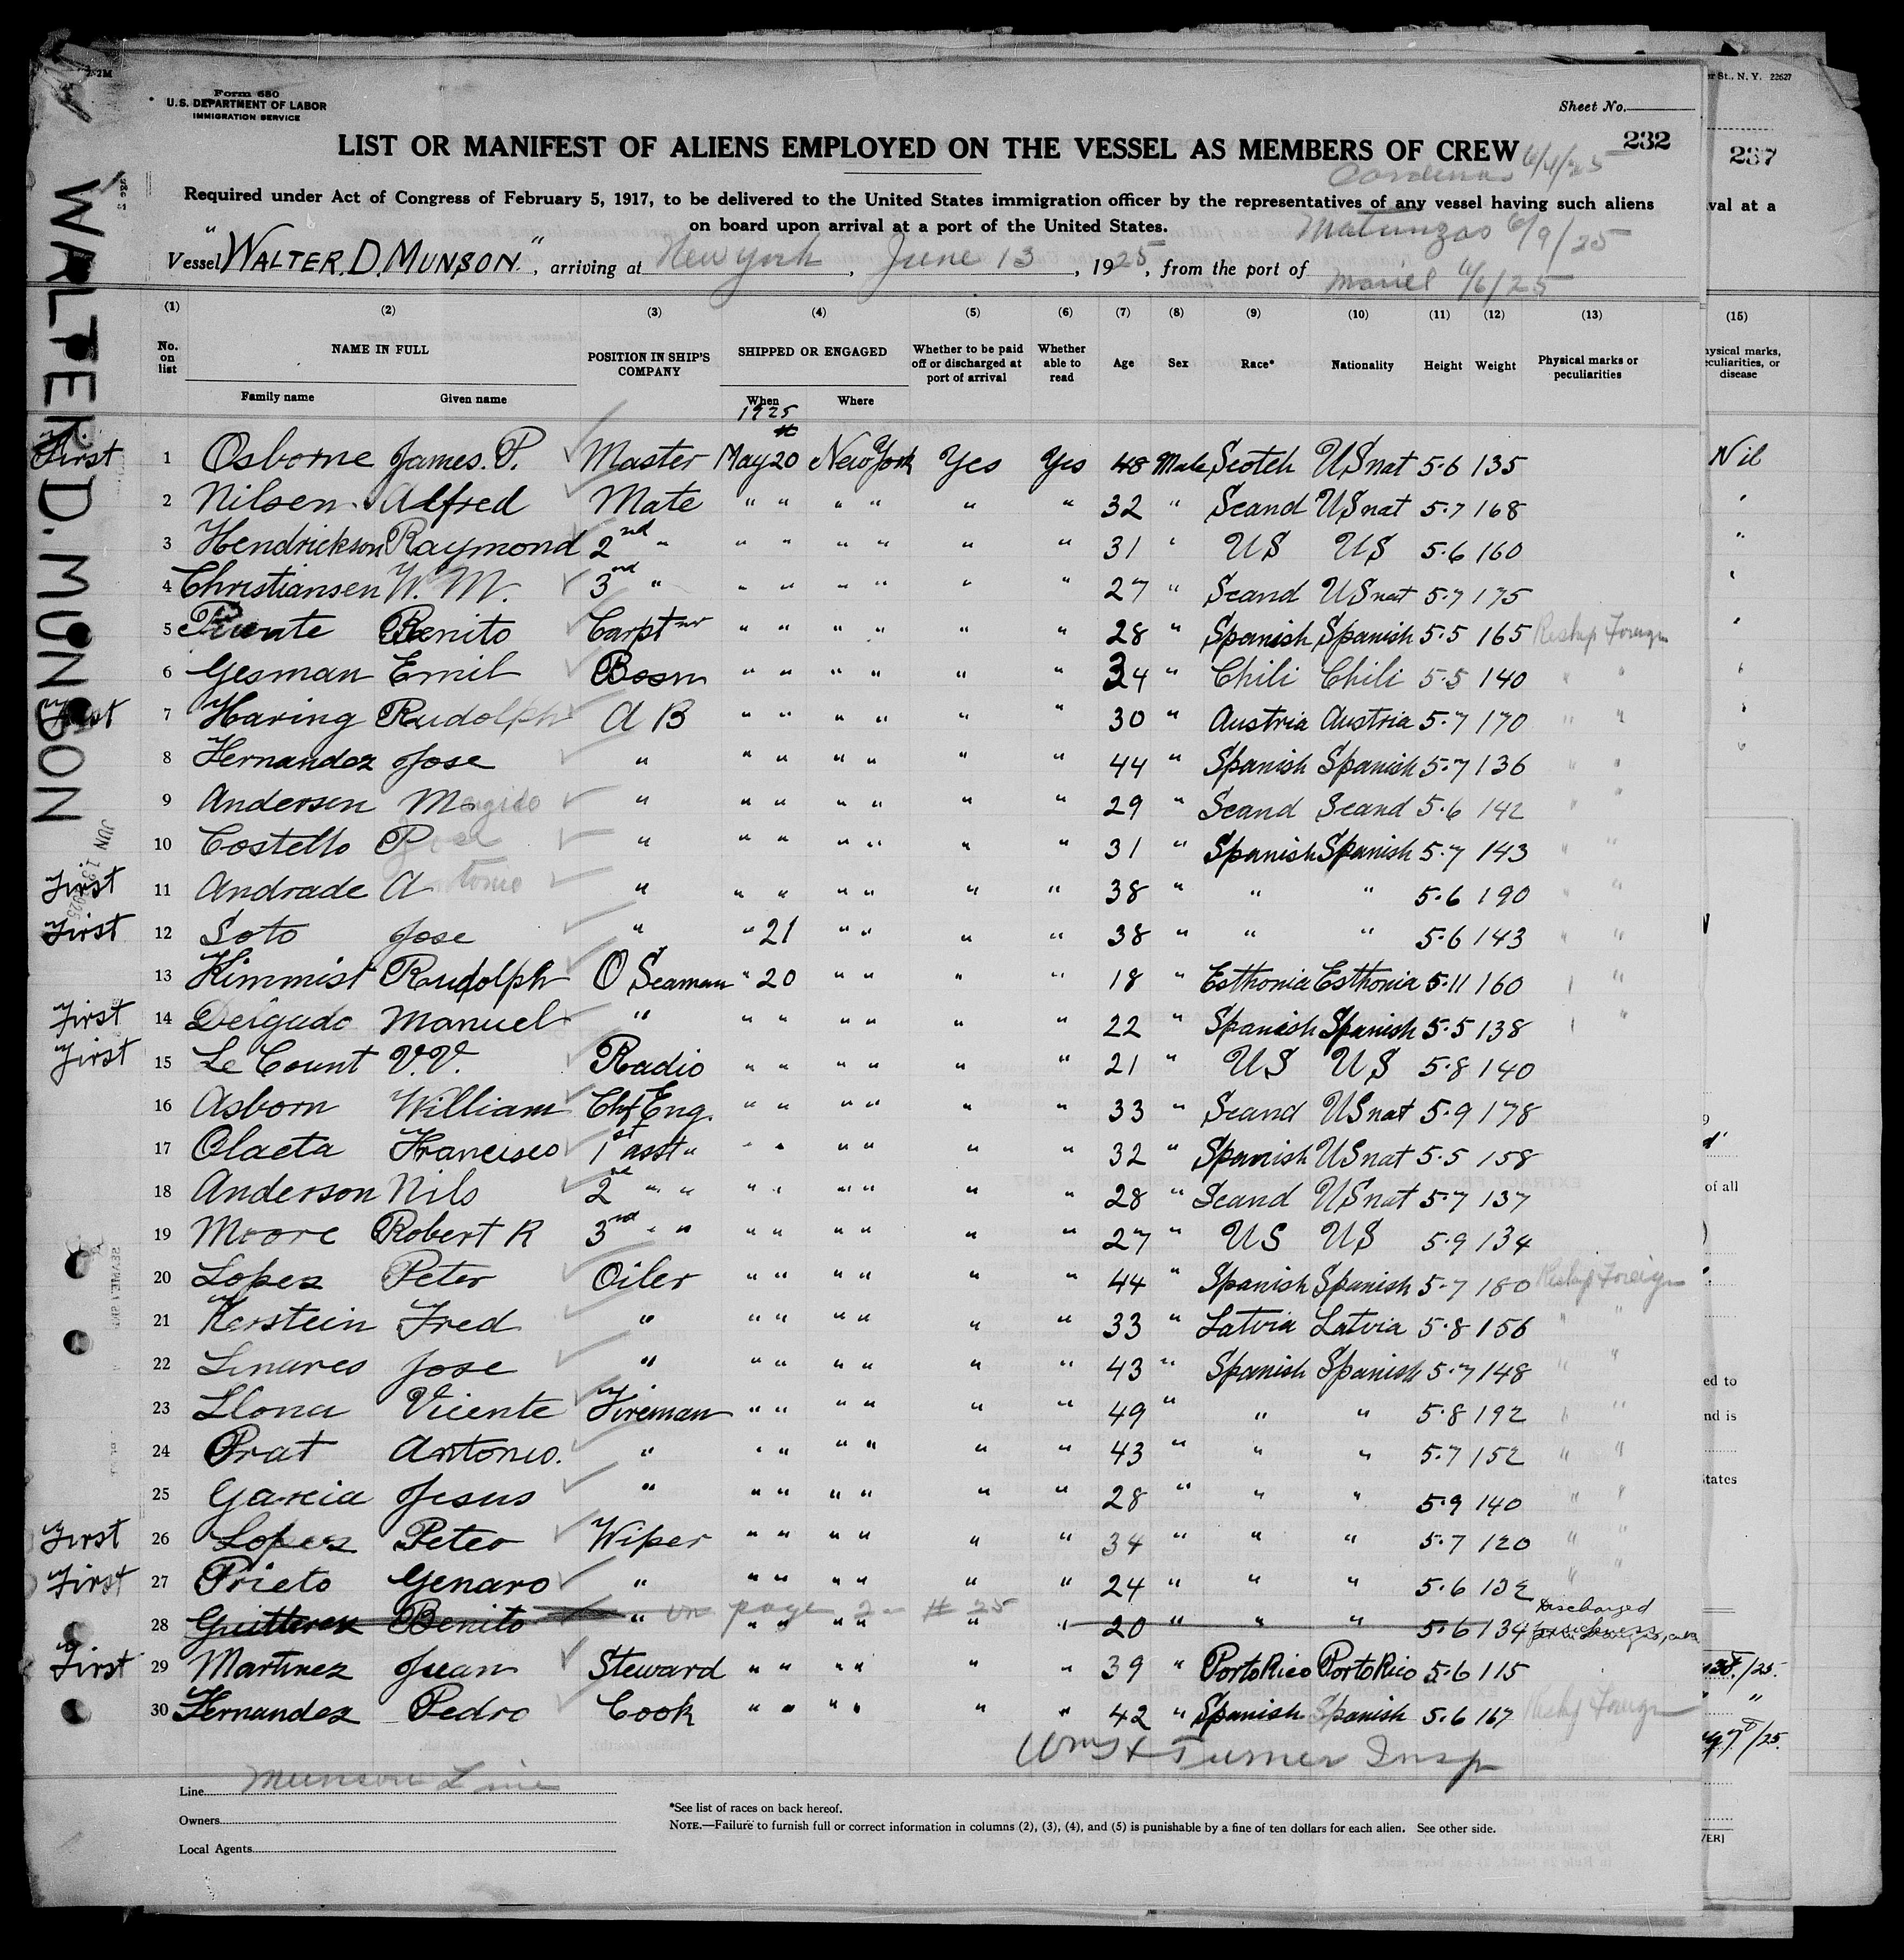 Form 680
U.S. DEPARTMENT OF LABOR
IMMIGRATION SERVICE
Sheet No.
232
LIST OR MANIFEST OF ALIENS EMPLOYED ON THE VESSEL AS MEMBERS OF CREW
6/4/25
Required under Act of Congress of February 5, 1917, to be delivered to the United States immigration officer by the representatives of any vessel having such aliens
on board upon arrival at a port of the United States.
Matanzas 6/9/25
Vessel "WALTER D MUNSON", arriving at New York, June 13, 1925, from the port of Mariel 6/6/25
(1) (2) (3) (4) (5) (6) (7) (8) (9) (10) (11) (12) (13)
No. on list NAME IN FULL POSITION IN SHIP'S COMPANY SHIPPED OR ENGAGED Whether to be paid off or discharged at port of arrival Whether able to read Age Sex Race* Nationality Height Weight Physical marks or peculiarities
Family name Given name When Where
1925
First 1 Osborne James. P. Master May 20 New York Yes Yes 48 Male Scotch US nat 5.6 135
2 Nilsen Alfred Mate " " " " " " 32 " Scand US nat 5.7 168
3 Hendrickson Raymond 2nd " " " " " " " 31 " US US 5.6 160
4 Christiansen W. M. 3rd " " " " " " " 27 " Scand US nat 5.7 175
5 Puente Benito Carptner " " " " " " 28 " Spanish Spanish 5.5 165 Reship Foreign
6 Gesman Emil Bosn " " " " " " 34 " Chili Chili 5.5 140 " "
First 7 Haring Rudolph A B " " " " " " 30 " Austria Austria 5.7 170 " "
8 Hernandez Jose " " " " " " " 44 " Spanish Spanish 5.7 136 " "
9 Andersen " " " " " " " 29 " Scand Scand 5.6 142 " "
10 Costello P " " " " " " " 31 " Spanish Spanish 5.7 143 " "
First 11 Andrade Antonio " " " " " " " 38 " " " 5.6 190 " "
First 12 Soto Jose " " 21 " " " " 38 " " " 5.6 143 " "
13 Kimmist Rudolph O Seaman " 20 " " " " 18 " Esthonia Esthonia 5.11 160 " "
First 14 Delgado Manuel " " " " " " " 22 " Spanish Spanish 5.5 138 " "
First 15 Le Count V.V. Radio " " " " " " 21 " US US 5.8 140
16 Asborn William Chf Eng. " " " " " " 33 " Scand US nat 5.9 178
17 Olaeta Francisco 1st asst " " " " " " " 32 " Spanish US nat 5.5 158
18 Anderson Nils 2nd " " " " " " " " 28 " Scand US nat 5.7 137
19 Moore Robert R 3rd " " " " " " " " 27 " US US 5.9 134
20 Lopez Peter Oiler " " " " " " 44 " Spanish Spanish 5.7 180 Reship Foreign
21 Kerstein Fred " " " " " " " 33 " Latvia Latvia 5.8 156 " "
22 Linares Jose " " " " " " " 43 " Spanish Spanish 5.7 148 " "
23 Llona Vicente Fireman " " " " " " 49 " " " 5.8 192 " "
24 Prat Antonio. " " " " " " " 43 " " " 5.7 152 " "
25 Garcia Jesus " " " " " " " 28 " " " 5.9 140 " "
First 26 Lopez Peter Wiper " " " " " " 34 " " " 5.7 120 " "
First 27 Prieto Genaro " " " " " " " 24 " " " 5.6 132 " "
28 Guitterez Benito " on page 2 - # 25 " " " " " " 20 " " " 5.6 134 Discharged
First 29 Martinez Juan Steward " " " " " " 39 " Porto Rico Porto Rico 5.6 115
30 Hernandez Pedro Cook " " " " " " 42 " Spanish Spanish 5.6 167 Reship Foreign
Turner Insp
Line Munson Line
Owners
Local Agents
*See list of races on back hereof.
NOTE.—Failure to furnish full or correct information in columns (2), (3), (4), and (5) is punishable by a fine of ten dollars for each alien. See other side.
WALTER D. MUNSON
St., N. Y. 22627
237
val at a
(15)
physical marks, peculiarities, or disease
Nil
of all
ed to
nd is
tates